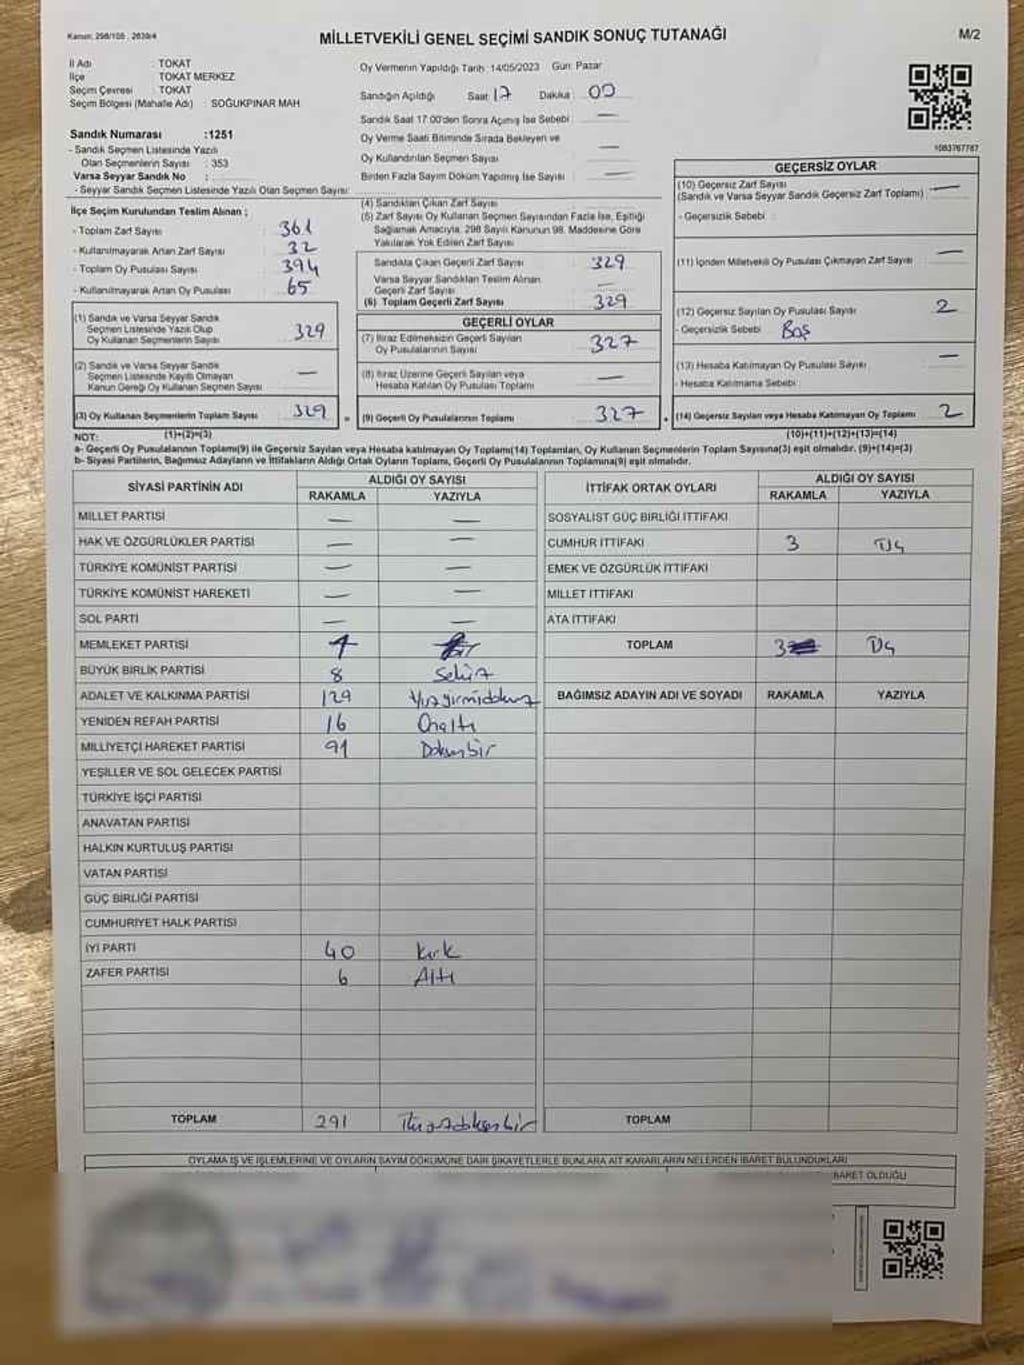 Kanun: 298/105 , 2839/4
MİLLETVEKİLİ GENEL SEÇİMİ SANDIK SONUÇ TUTANAĞI
M/2
İl Adı : TOKAT
İlçe TOKAT MERKEZ
Seçim Çevresi : TOKAT
Seçim Bölgesi (Mahalle Adı) : SOĞUKPINAR MAH
Sandık Numarası :1251
- Sandık Seçmen Listesinde Yazılı
Olan Seçmenlerin Sayısı : 353
Varsa Seyyar Sandık No :
- Seyyar Sandık Seçmen Listesinde Yazılı Olan Seçmen Sayısı:
Oy Vermenin Yapıldığı Tarih :14/05/2023 Gün: Pazar
Sandığın Açıldığı Saat: 17 Dakika : 00
Sandık Saat 17:00'den Sonra Açılmış İse Sebebi : —
Oy Verme Saati Bitiminde Sırada Bekleyen ve
Oy Kullandırılan Seçmen Sayısı —
Birden Fazla Sayım Döküm Yapılmış İse Sayısı : —
1083767787
İlçe Seçim Kurulundan Teslim Alınan ;
- Toplam Zarf Sayısı : 361
- Kullanılmayarak Artan Zarf Sayısı : 32
- Toplam Oy Pusulası Sayısı : 394
- Kullanılmayarak Artan Oy Pusulası : 65
(1) Sandık ve Varsa Seyyar Sandık
Seçmen Listesinde Yazılı Olup
Oy Kullanan Seçmenlerin Sayısı 329
(2) Sandık ve Varsa Seyyar Sandık
Seçmen Listesinde Kayıtlı Olmayan
Kanun Gereği Oy Kullanan Seçmen Sayısı —
(3) Oy Kullanan Seçmenlerin Toplam Sayısı 329
(1)+(2)=(3)
(4) Sandıktan Çıkan Zarf Sayısı :
(5) Zarf Sayısı Oy Kullanan Seçmen Sayısından Fazla İse, Eşitliği
Sağlamak Amacıyla, 298 Sayılı Kanunun 98. Maddesine Göre
Yakılarak Yok Edilen Zarf Sayısı :
Sandıkta Çıkan Geçerli Zarf Sayısı : 329
Varsa Seyyar Sandıktan Teslim Alınan
Geçerli Zarf Sayısı : —
(6) Toplam Geçerli Zarf Sayısı : 329
GEÇERLİ OYLAR
(7) İtiraz Edilmeksizin Geçerli Sayılan
Oy Pusulalarının Sayısı : 327
(8) İtiraz Üzerine Geçerli Sayılan veya
Hesaba Katılan Oy Pusulası Toplamı : —
= (9) Geçerli Oy Pusulalarının Toplamı : 327
GEÇERSİZ OYLAR
(10) Geçersiz Zarf Sayısı
(Sandık ve Varsa Seyyar Sandık Geçersiz Zarf Toplamı) : —
- Geçersizlik Sebebi :
(11) İçinden Milletvekili Oy Pusulası Çıkmayan Zarf Sayısı : —
(12) Geçersiz Sayılan Oy Pusulası Sayısı : 2
- Geçersizlik Sebebi : Boş
(13) Hesaba Katılmayan Oy Pusulası Sayısı : —
- Hesaba Katılmama Sebebi :
+ (14) Geçersiz Sayılan veya Hesaba Katılmayan Oy Toplamı : 2
(10)+(11)+(12)+(13)=(14)
NOT:
a- Geçerli Oy Pusulalarının Toplamı(9) ile Geçersiz Sayılan veya Hesaba katılmayan Oy Toplamı(14) Toplamları, Oy Kullanan Seçmenlerin Toplam Sayısına(3) eşit olmalıdır. (9)+(14)=(3)
b- Siyasi Partilerin, Bağımsız Adayların ve İttifakların Aldığı Ortak Oyların Toplamı, Geçerli Oy Pusulalarının Toplamına(9) eşit olmalıdır.
SİYASİ PARTİNİN ADI ALDIĞI OY SAYISI
RAKAMLA YAZIYLA
MİLLET PARTİSİ — —
HAK VE ÖZGÜRLÜKLER PARTİSİ — —
TÜRKİYE KOMÜNİST PARTİSİ — —
TÜRKİYE KOMÜNİST HAREKETİ — —
SOL PARTİ — —
MEMLEKET PARTİSİ 1 Bir
BÜYÜK BİRLİK PARTİSİ 8 Sekiz
ADALET VE KALKINMA PARTİSİ 129 Yüzyirmidokuz
YENİDEN REFAH PARTİSİ 16 Onaltı
MİLLİYETÇİ HAREKET PARTİSİ 91 Doksanbir
YEŞİLLER VE SOL GELECEK PARTİSİ
TÜRKİYE İŞÇİ PARTİSİ
ANAVATAN PARTİSİ
HALKIN KURTULUŞ PARTİSİ
VATAN PARTİSİ
GÜÇ BİRLİĞİ PARTİSİ
CUMHURİYET HALK PARTİSİ
İYİ PARTİ 40 Kırk
ZAFER PARTİSİ 6 Altı
TOPLAM 291 İkiyüzdoksanbir
İTTİFAK ORTAK OYLARI ALDIĞI OY SAYISI
RAKAMLA YAZIYLA
SOSYALİST GÜÇ BİRLİĞİ İTTİFAKI
CUMHUR İTTİFAKI 3 Üç
EMEK VE ÖZGÜRLÜK İTTİFAKI
MİLLET İTTİFAKI
ATA İTTİFAKI
TOPLAM 3 Üç
BAĞIMSIZ ADAYIN ADI VE SOYADI RAKAMLA YAZIYLA
TOPLAM
OYLAMA İŞ VE İŞLEMLERİNE VE OYLARIN SAYIM DÖKÜMÜNE DAİR ŞİKAYETLERLE BUNLARA AİT KARARLARIN NELERDEN İBARET BULUNDUKLARI
İBARET OLDUĞU